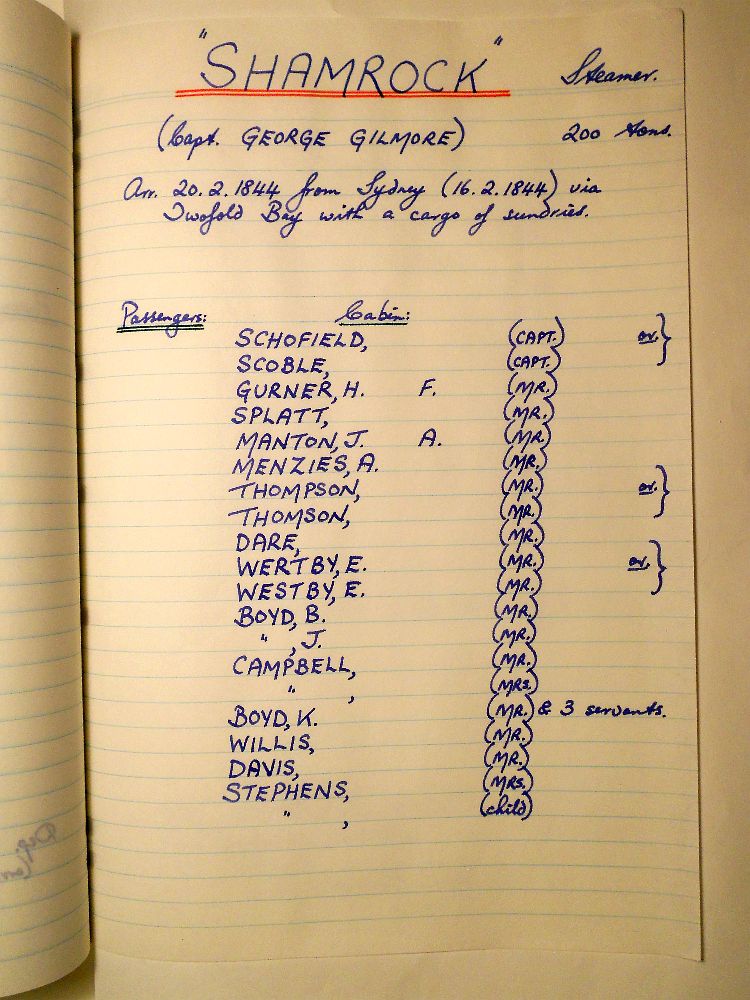 "SHAMROCK" Steamer.
(Capt. GEORGE GILMORE) 200 tons.
Arr. 20.2.1844 from Sydney (16.2.1844) via
Twofold Bay with a cargo of sundries.
Passengers: Cabin:
SCHOFIELD, (CAPT.) or. }
SCOBLE, (CAPT.)
GURNER, H. F. (MR.)
SPLATT, (MR.)
MANTON, J. A. (MR.)
MENZIES, A. (MR.)
THOMPSON, (MR.) or. }
THOMSON, (MR.)
DARE, (MR.)
WERTBY, E. (MR.) or. }
WESTBY, E. (MR.)
BOYD, B. (MR.)
" , J. (MR.)
CAMPBELL, (MR.)
" , (MRS.)
BOYD, K. (MR.) & 3 servants.
WILLIS, (MR.)
DAVIS, (MR.)
STEPHENS, (MRS.)
" , (child)